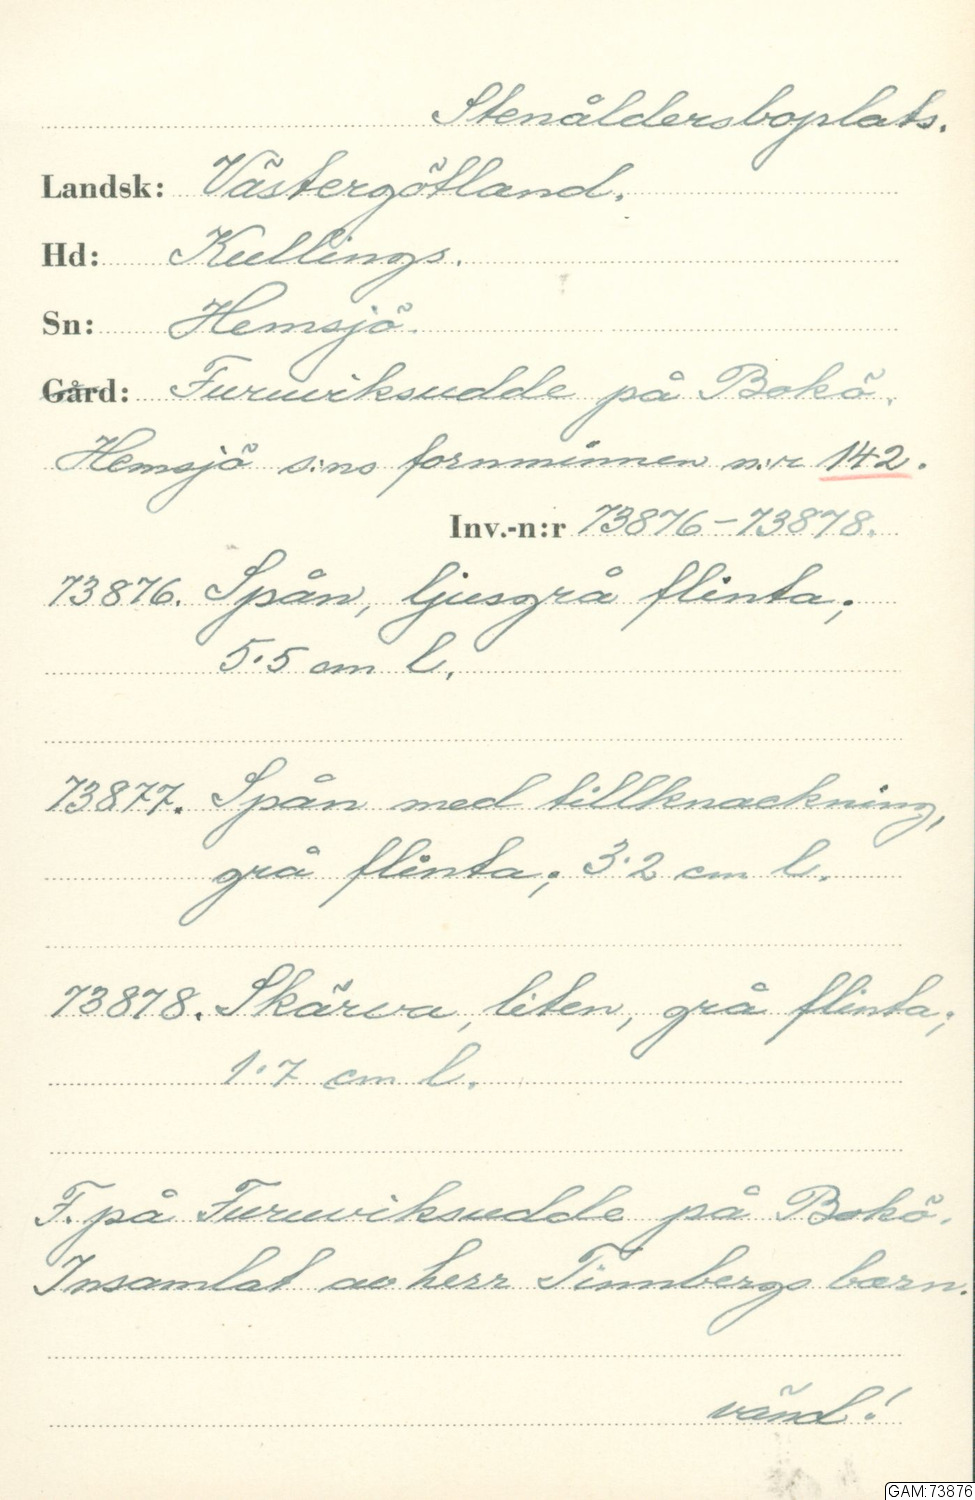 Stenåldersboplats.
Landsk: Västergötland.
Hd: Kullings.
Sn: Hemsjö.
Gård: Furuviksudde på Bokö.
Hemsjö s:ns fornminnen n:r 142.
Inv.-n:r 73876-73878.
73876. Spån, ljusgrå flinta;
5.5 cm l.
73877. Spån med tillknackning,
grå flinta; 3.2 cm l.
73878. Skärva, liten, grå flinta;
1.7 cm l.
F. på Furuviksudde på Bokö.
Insamlat av herr Tinnbergs barn.
vänd!
GAM:73876